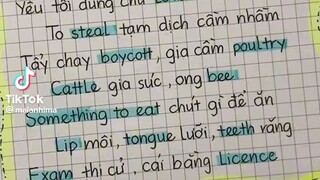 Yêu tôi dùng chữ
To steal tạm dịch cầm nhầm
Tẩy chay boycott, gia cầm poultry
Cattle gia súc, ong bee
Something to eat chút gì để ăn
Lip môi, tongue lưỡi, teeth răng
Exam thi cử, cái bằng Licence
TikTok